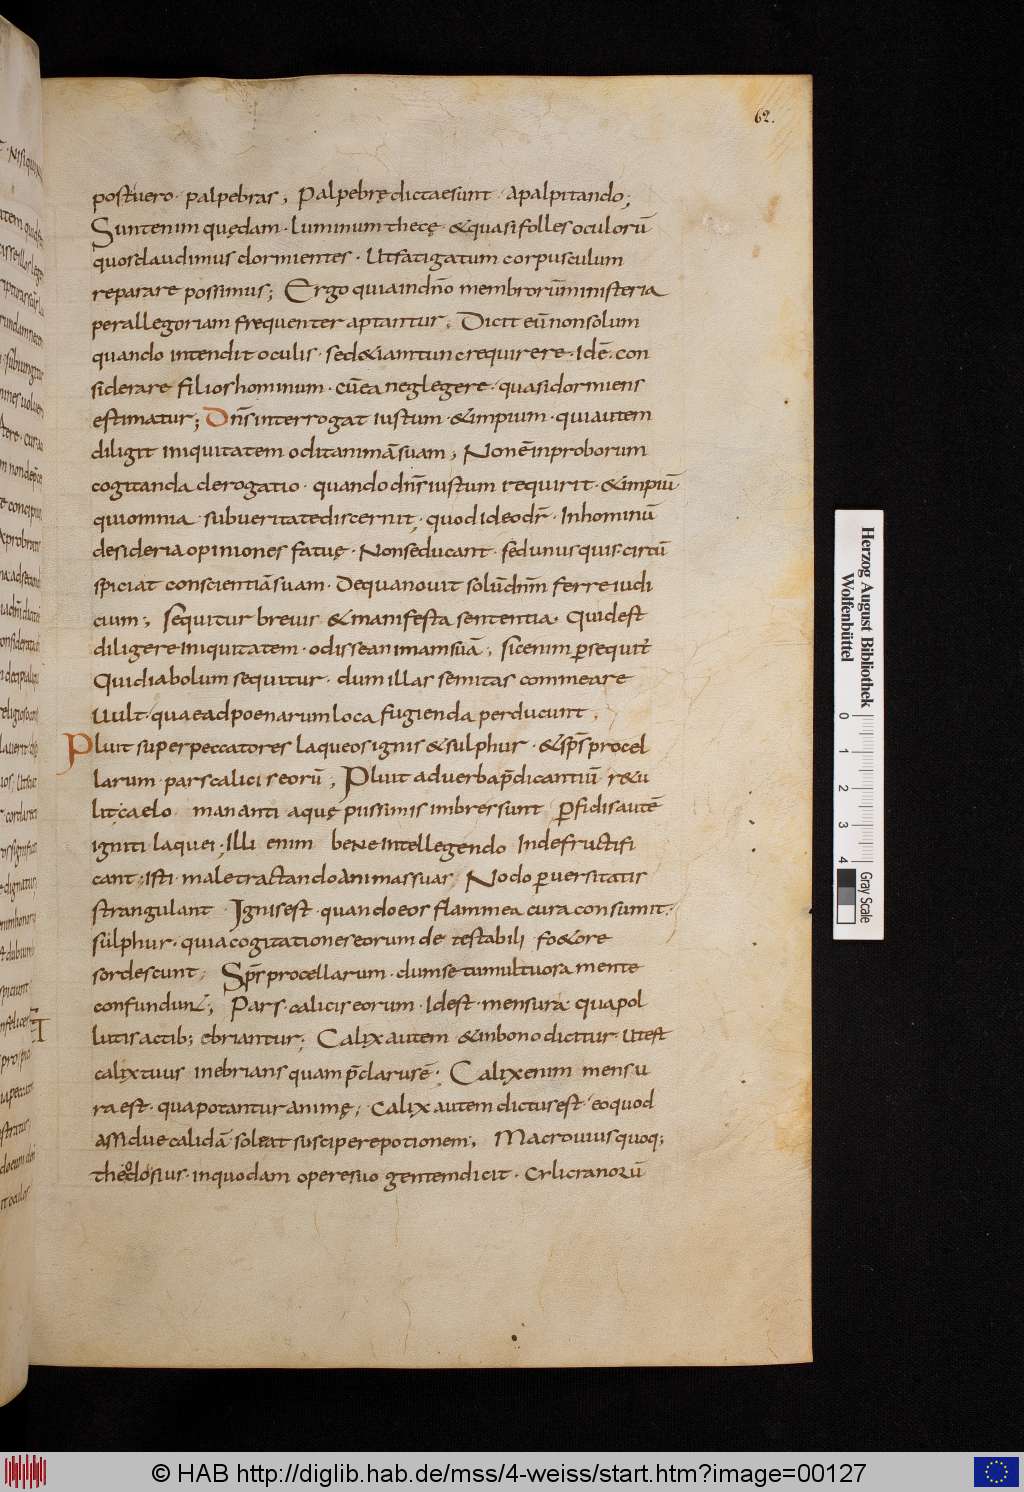 62.
postuero· palpebras; Palpebrę dictae sunt · apalpitando;
Sunt enim quędam · luminum thecę · & quasi folles oculorū
quos claudimus dormientes · Ut fatigatum corpusculum
reparare possimus; Ergo quia in dn̄o membrorū ministeria
per allegoriam frequenter aptantur; Dicit eū non solum
quando intendit oculis · sed & iam tunc requirere · Idē · con
siderare filios hominum · cū ea neglegere · quasi dormiens
estimatur; Dn̄s interrogat iustum · & impium · qui autem
diligit iniquitatem odit animā suam; Non ē inproborum
cogitanda derogatio · quando dn̄s iustum requirit · & impiū·
qui omnia · sub ueritate discernit; quod ideo dr̄ · In hominū
desideria opiniones fatuę · Non seducant · sed unusquis circū
spiciat conscientiā suam · De qua nouit solū dn̄m ferre iudi
cium; Sequitur breuis & manifesta sententia · Quid est
diligere iniquitatem · odisse animam suā; sic enim ꝑsequit̄
Qui diabolum sequitur · dum illas semitas commeare
uult · quae ad poenarum loca fugienda perducunt;
Pluit super peccatores laqueos ignis & sulphur · & sp̄s procel
larum · pars calicis eorū; Pluit ad uerba p̄dicantiū r&u
lit; caelo mananti aquę piissimis imbres sunt ꝑfidis autē
igniti laquei; Illi enim bene intellegendo Inde fructifi
cant; isti male tractando animas suas; Nodo ꝑuersitatis
strangulant · Ignis est · quando eos flammea cura consumit;
sulphur · quia cogitationes eorum detestabili fo&ore
sordescunt; Sp̄s procellarum · dum se tumultuosa mente
confundun&; Pars calicis eorum · Id est · mensura qua pol
lutis actib; ebriantur; Calix autem & in bono dicitur · Ut est
calix tuus inebrians quam p̄clarus ē; Calix enim mensu
ra est · qua potantur animę; Calix autem dictus est · eo quod
assidue calidā soleat suscipere potionem; Macrouius quoq;
theodosius · in quodam opere suo gentem dicit ·
© HAB http://diglib.hab.de/mss/4-weiss/start.htm?image=00127
Herzog August Bibliothek
Wolfenbüttel
0 1 2 3 4
Gray Scale